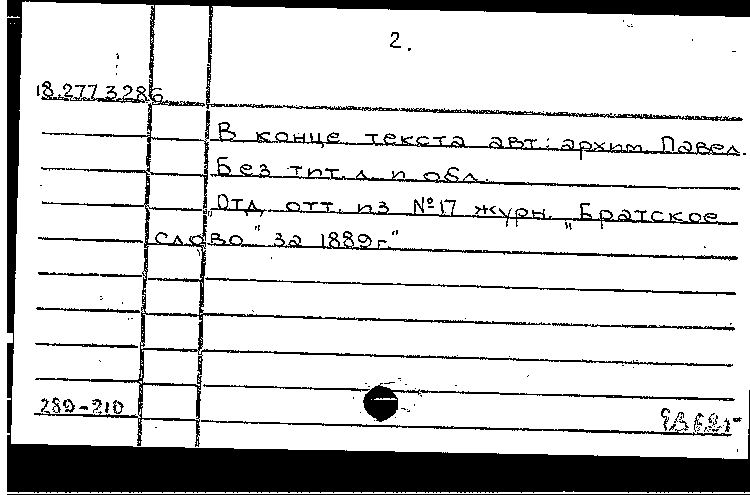 2.
18.277.3286
В конце текста авт.: архим. Павел.
Без тит. л. и обл.
„Отд. отт. из №17 журн. „Братское
слово" за 1889г."
289-210